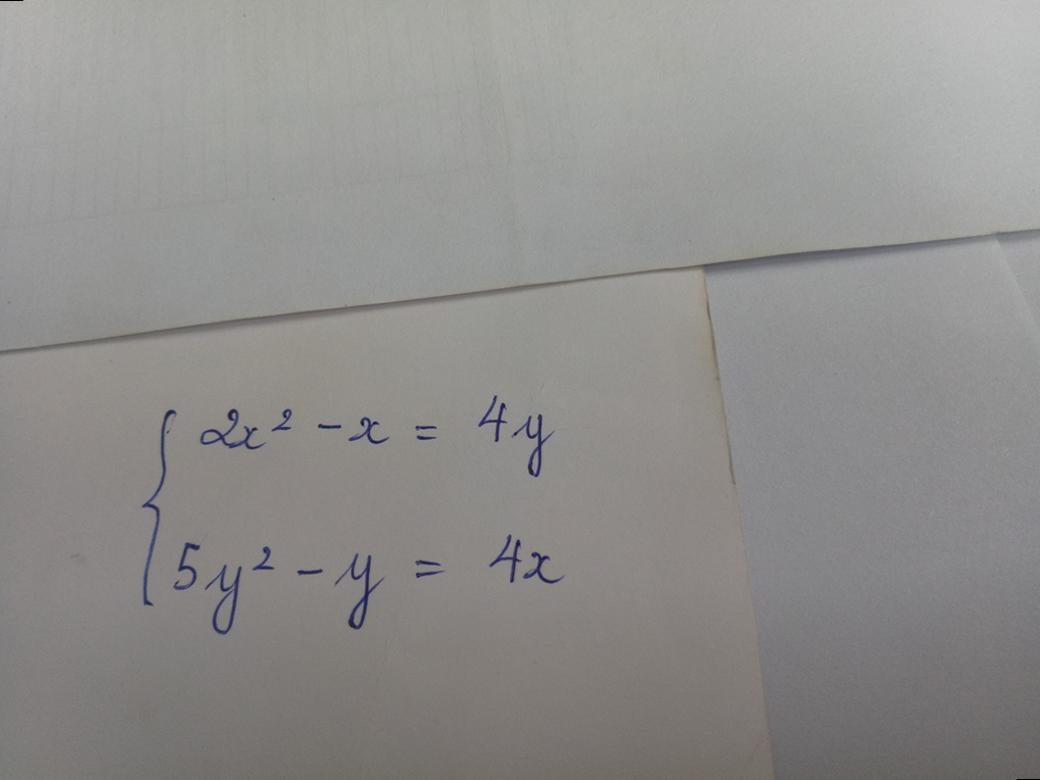 2x² - x = 4y
5y² - y = 4x